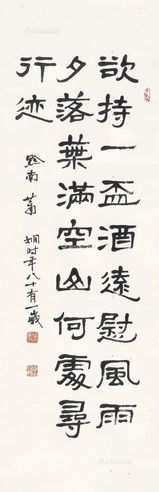 欲持一盃酒遠慰風雨
夕落葉滿空山何處尋
行迹
黔南蕭嫻時年八十有一歲